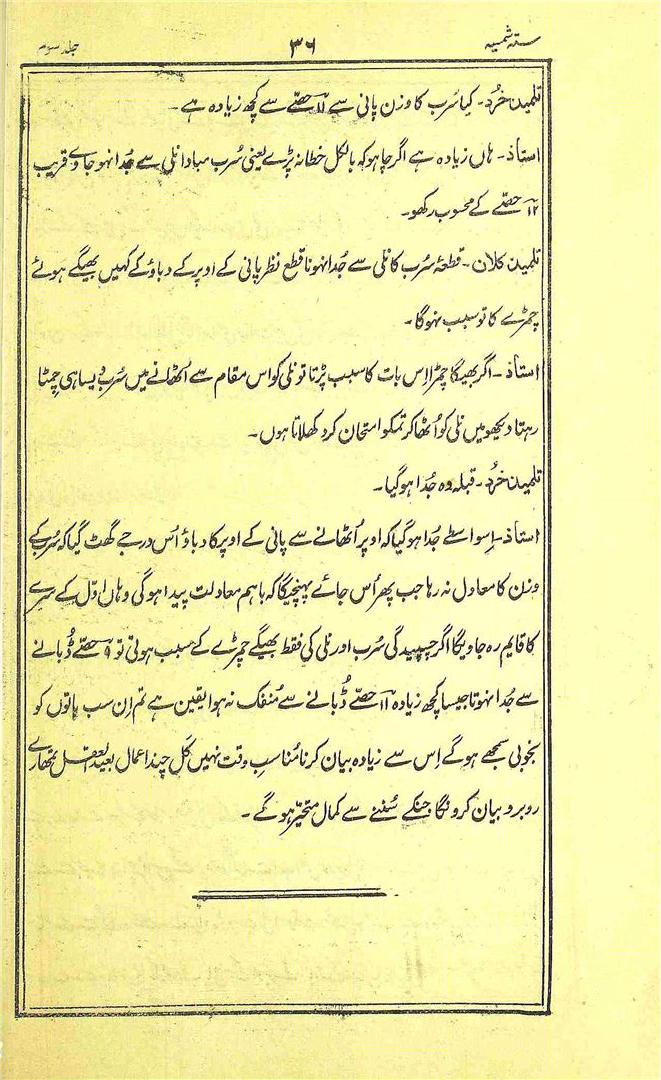 ستہ شمسیہ ۳۶ جلد سوم
تلمیذ خُرد۔ کیا سُرب کا وزن پانی سے ۱۱ حصّے سے کچھ زیادہ ہے۔
استاذ۔ ہاں زیادہ ہے اگر چاہو کہ بالکل خطا نہ پڑے یعنی سُرب مبادا نلی سے جُدا نہو جاوے قریب
۱۲ حصّے کے محسوب رکھو۔
تلمیذ کلان۔ قطعۂ سُرب کا نلی سے جُدا نہونا قطع نظر پانی کے اوپر کے دباؤ کے کہیں بھیگے ہوئے
چمڑے کا تو سبب نہوگا۔
استاذ۔ اگر بھیگا چمڑا اِس بات کا سبب پڑتا تو نلی کو اس مقام سے اُٹھانے میں سُرب ویسا ہی چمٹا
رہتا دیکھو میں نلی کو اُٹھا کر تمکو امتحان کر دکھلاتا ہوں۔
تلمیذ خُرد۔ قبلہ وہ جُدا ہوگیا۔
استاذ۔ اِسواسطے جُدا ہوگیا کہ اوپر اُٹھانے سے پانی کے اوپر کا دباؤ اُس درجے گھٹ گیا کہ سُرب کے
وزن کا معادل نہ رہا جب پھر اُس جائے پہنچیگا کہ باہم معادلت پیدا ہوگی وہاں اوّل کے سرے
کا قایم رہ جاویگا اگر چسپیدگی سُرب اور نلی کی فقط بھیگے چمڑے کے سبب ہوتی تو ۹ حصّے ڈُبانے
سے جُدا نہوتا جیسا کچھ زیادہ ۱۱ حصّے ڈُبانے سے مُنفک نہ ہوا یقین ہے تم اِن سب باتوں کو
بخوبی سمجھے ہوگے اِس سے زیادہ بیان کرنا مُناسبِ وقت نہیں کَل چند اعمال بعید العقل تمھارے
روبرو بیان کرونگا جنکے سُننے سے کمال متحیّر ہوگے۔